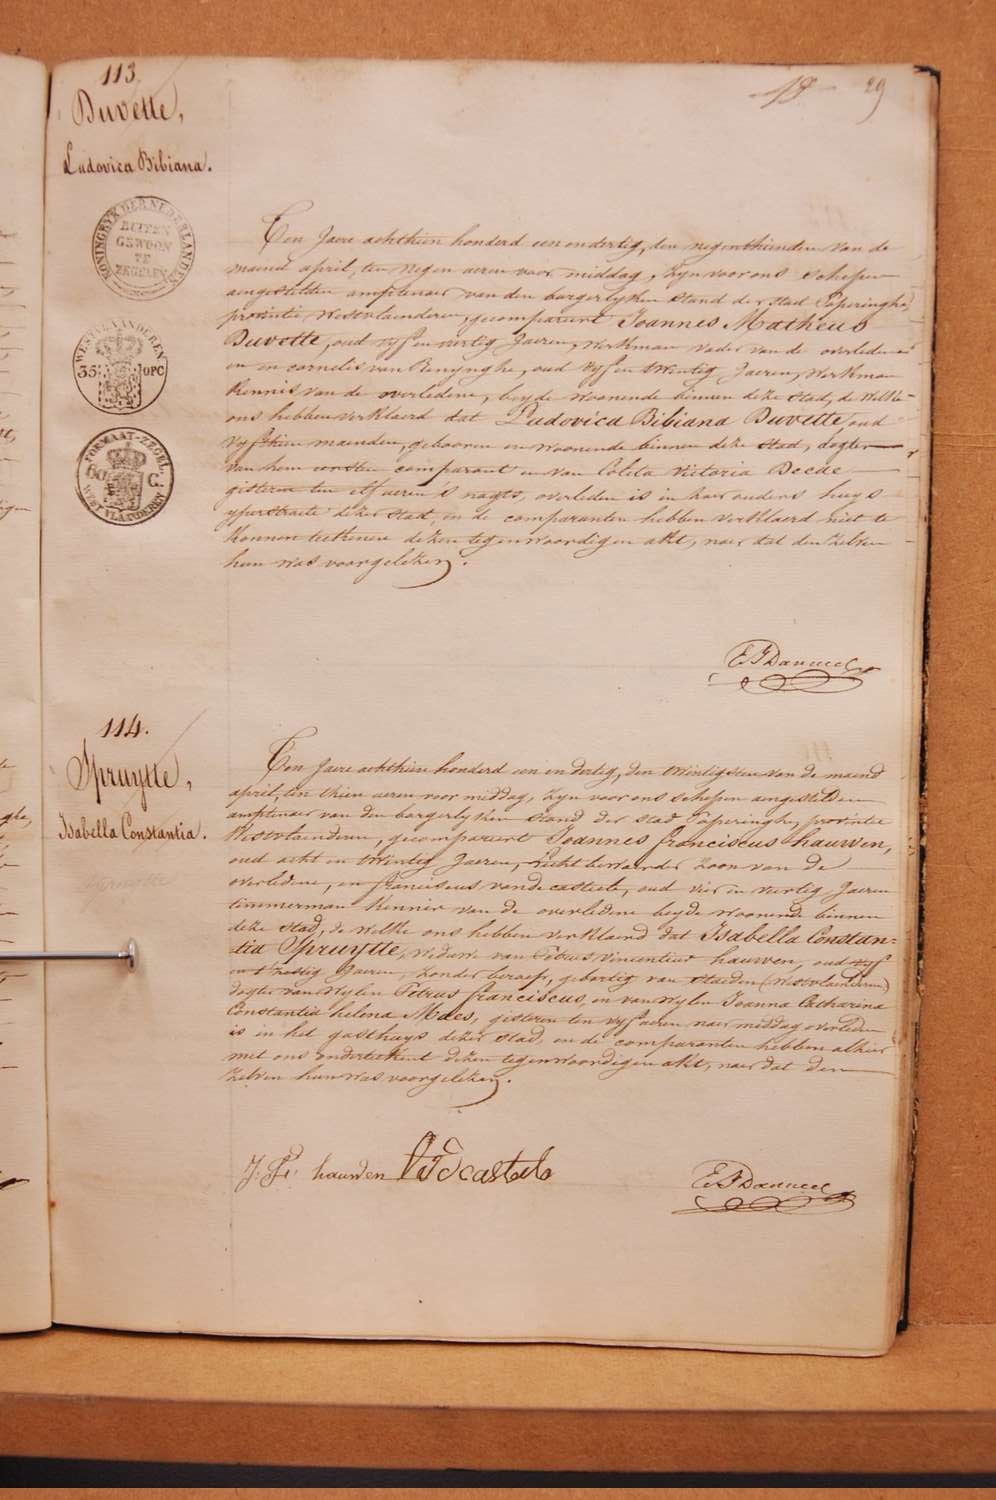 29
113.
Duvette,
Ludovica Bibiana.
KONINGRYK DER NEDERLANDEN
BUITEN
GEWOON
TE
ZEGELEN
WESTVLAANDEREN
35 OPC
FORMAAT-ZEGEL
60 C.
WEST VLAANDEREN
Ten Jaere achthien honderd een en dertig, den negenthienden van de
maend april, ten negen aeren voor middag, zyn voor ons schepen
aengestelden amptenaer van den borgerlyken stand der stad Poperinghe,
provintie Westvlaenderen, gecompareert Joannes Matheus
Duvette, oud vyf en veertig Jaeren, werkman vader van de overledene
en en cornelis van Renynghe, oud vyf en twintig Jaeren, werkman
kennis van de overledene, beyde woonende binnen deze stad, de welke
ons hebben verklaerd dat Ludovica Bibiana Duvette, oud
vyfthien maenden, gebooren en woonende binnen deze stad, dogter
van hem eersten comparant en van Coleta Victoria Decae
gisteren ten elf aeren 's nagts, overleden is in haer ouders huys
yperstraete dezer stad, en de comparanten hebben verklaerd niet te
konnen teekenen dezen tegenwoordigen akt, naer dat den zelven
hun was voorgelezen.
114.
Spruytte,
Isabella Constantia.
Spruytte
Ten Jaere achthien honderd een en dertig, den twintigsten van de maend
april, ten thien aeren voor middag, zyn voor ons schepen aengestelden
amptenaer van den borgerlyken stand der stad Poperinghe, provintie
Westvlaenderen, gecompareert Joannes franciscus hauwen,
oud acht en twintig Jaeren, zoon van de
overledene, en franciscus vandecasteele, oud vier en veertig Jaeren
timmerman kennis van de overledene beyde woonende binnen
deze stad, de welke ons hebben verklaerd dat Isabella Constan=
tia Spruytte, weduwe van Petrus Vincentius hauwen, oud vyf
en t'zestig Jaeren, zonder beroep, gebortig van Staeden (Westvlaenderen)
dogter van wylen Petrus franciscus, en van wylen Joanna Catharina
Constantia helena Maes, gisteren ten vyf aeren naer middag overleden
is in het gasthuys dezer stad, en de comparanten hebben alhier
met ons onderteekent dezen tegenwoordigen akt, naer dat den
zelven hun was voorgelezen.
J. F. hauwen